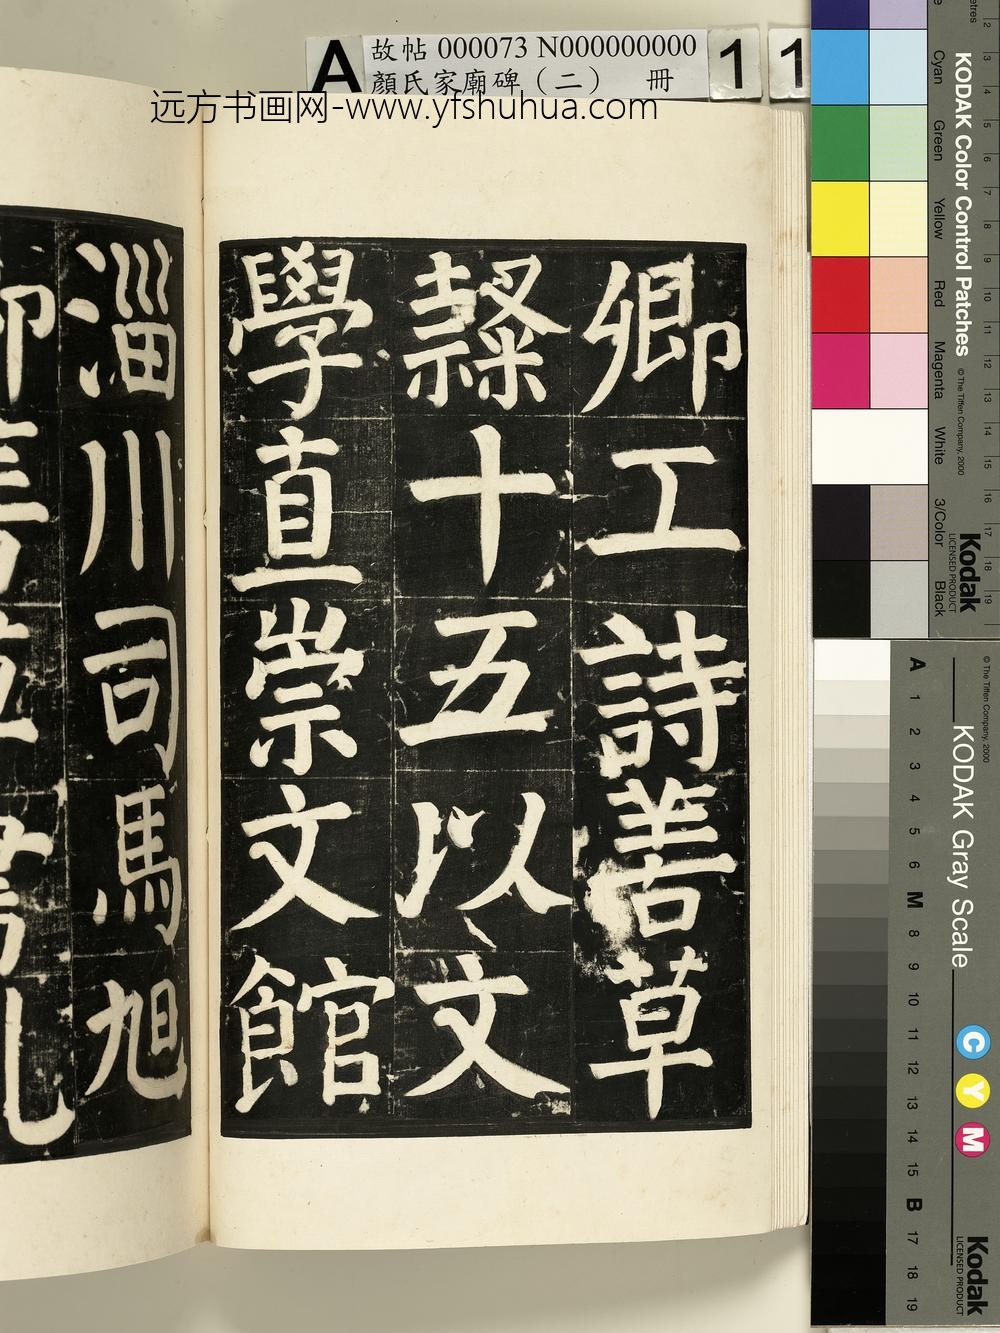 A 故帖 000073 N000000000 1 1
顏氏家廟碑（二） 冊
远方书画网-www.yfshuhua.com
卿工詩善草
隸十五以文
學直崇文館
淄川司馬旭
卿善
Cyan
Green
Yellow
Red
Magenta
White
3/Color
Black
KODAK Color Control Patches
© The Tiffen Company, 2000
Kodak
LICENSED PRODUCT
2 3 4 5 6 7 8 9 10 11 12 13 14 15 16 17 18 19
© The Tiffen Company, 2000
KODAK Gray Scale
C Y M
Kodak
LICENSED PRODUCT
A 1 2 3 4 5 6 M 8 9 10 11 12 13 14 15 B 17 18 19